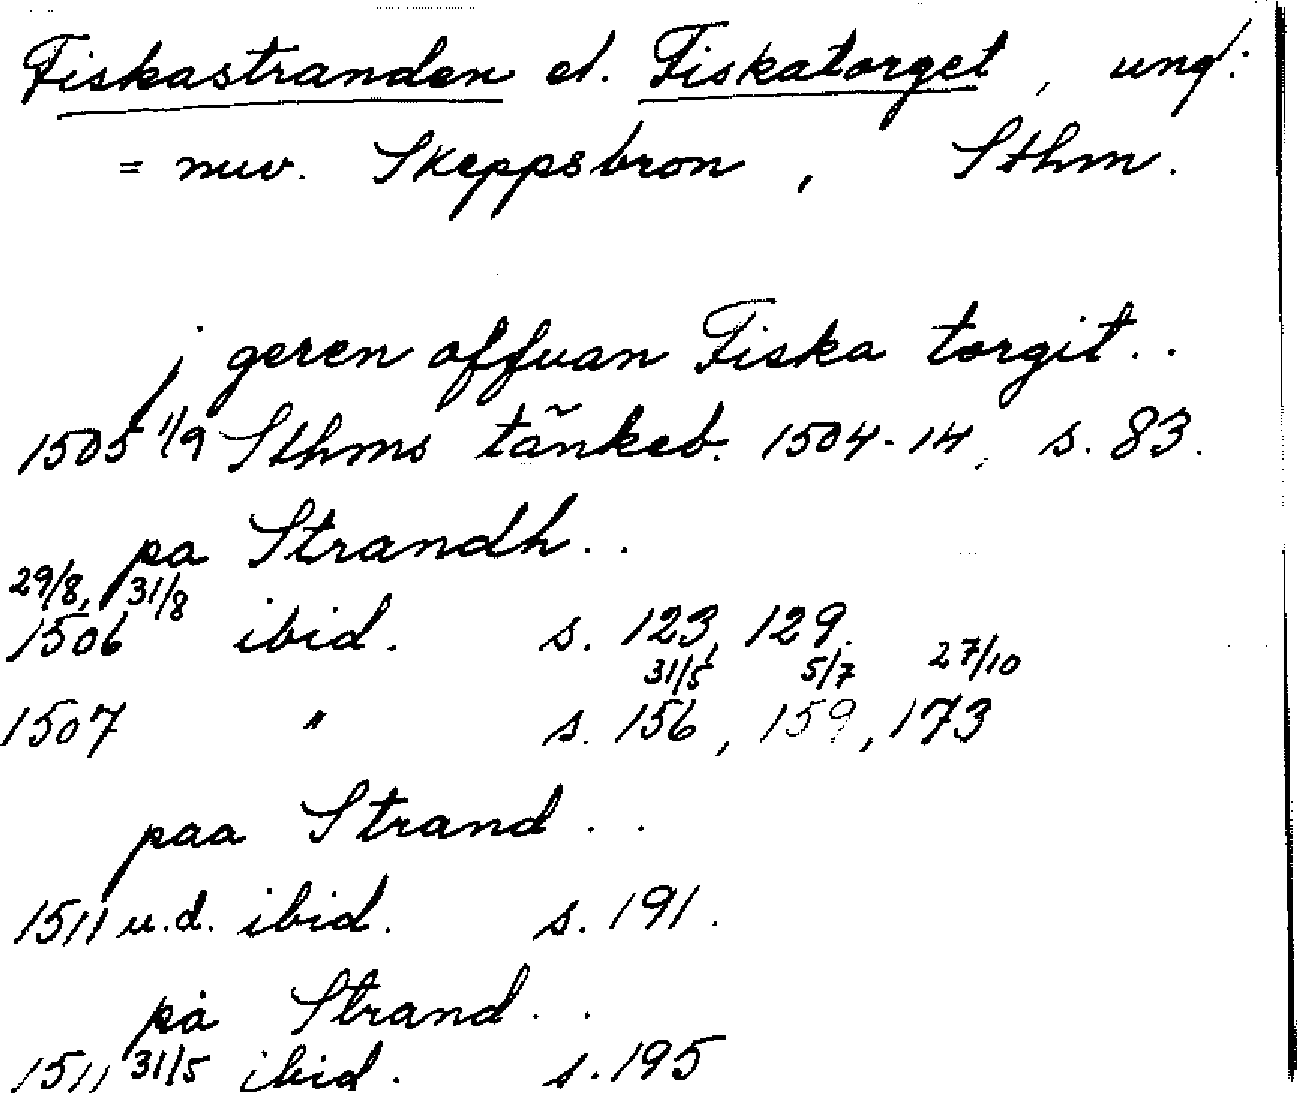 Fiskastranden el. Fiskatorget, ung:
= nuv. Skeppsbron, Sthm.
j geren offuan Fiska torgit..
1505 1/9 Sthms tänkeb. 1504-14, s. 83.
pa Strandh..
29/8, 31/8
1506 ibid. s. 123, 129.
31/5 5/7 27/10
1507 " s. 156, 159, 173
paa Strand..
1511 u.d. ibid. s. 191.
på Strand..
1511 31/5 ibid. s. 195